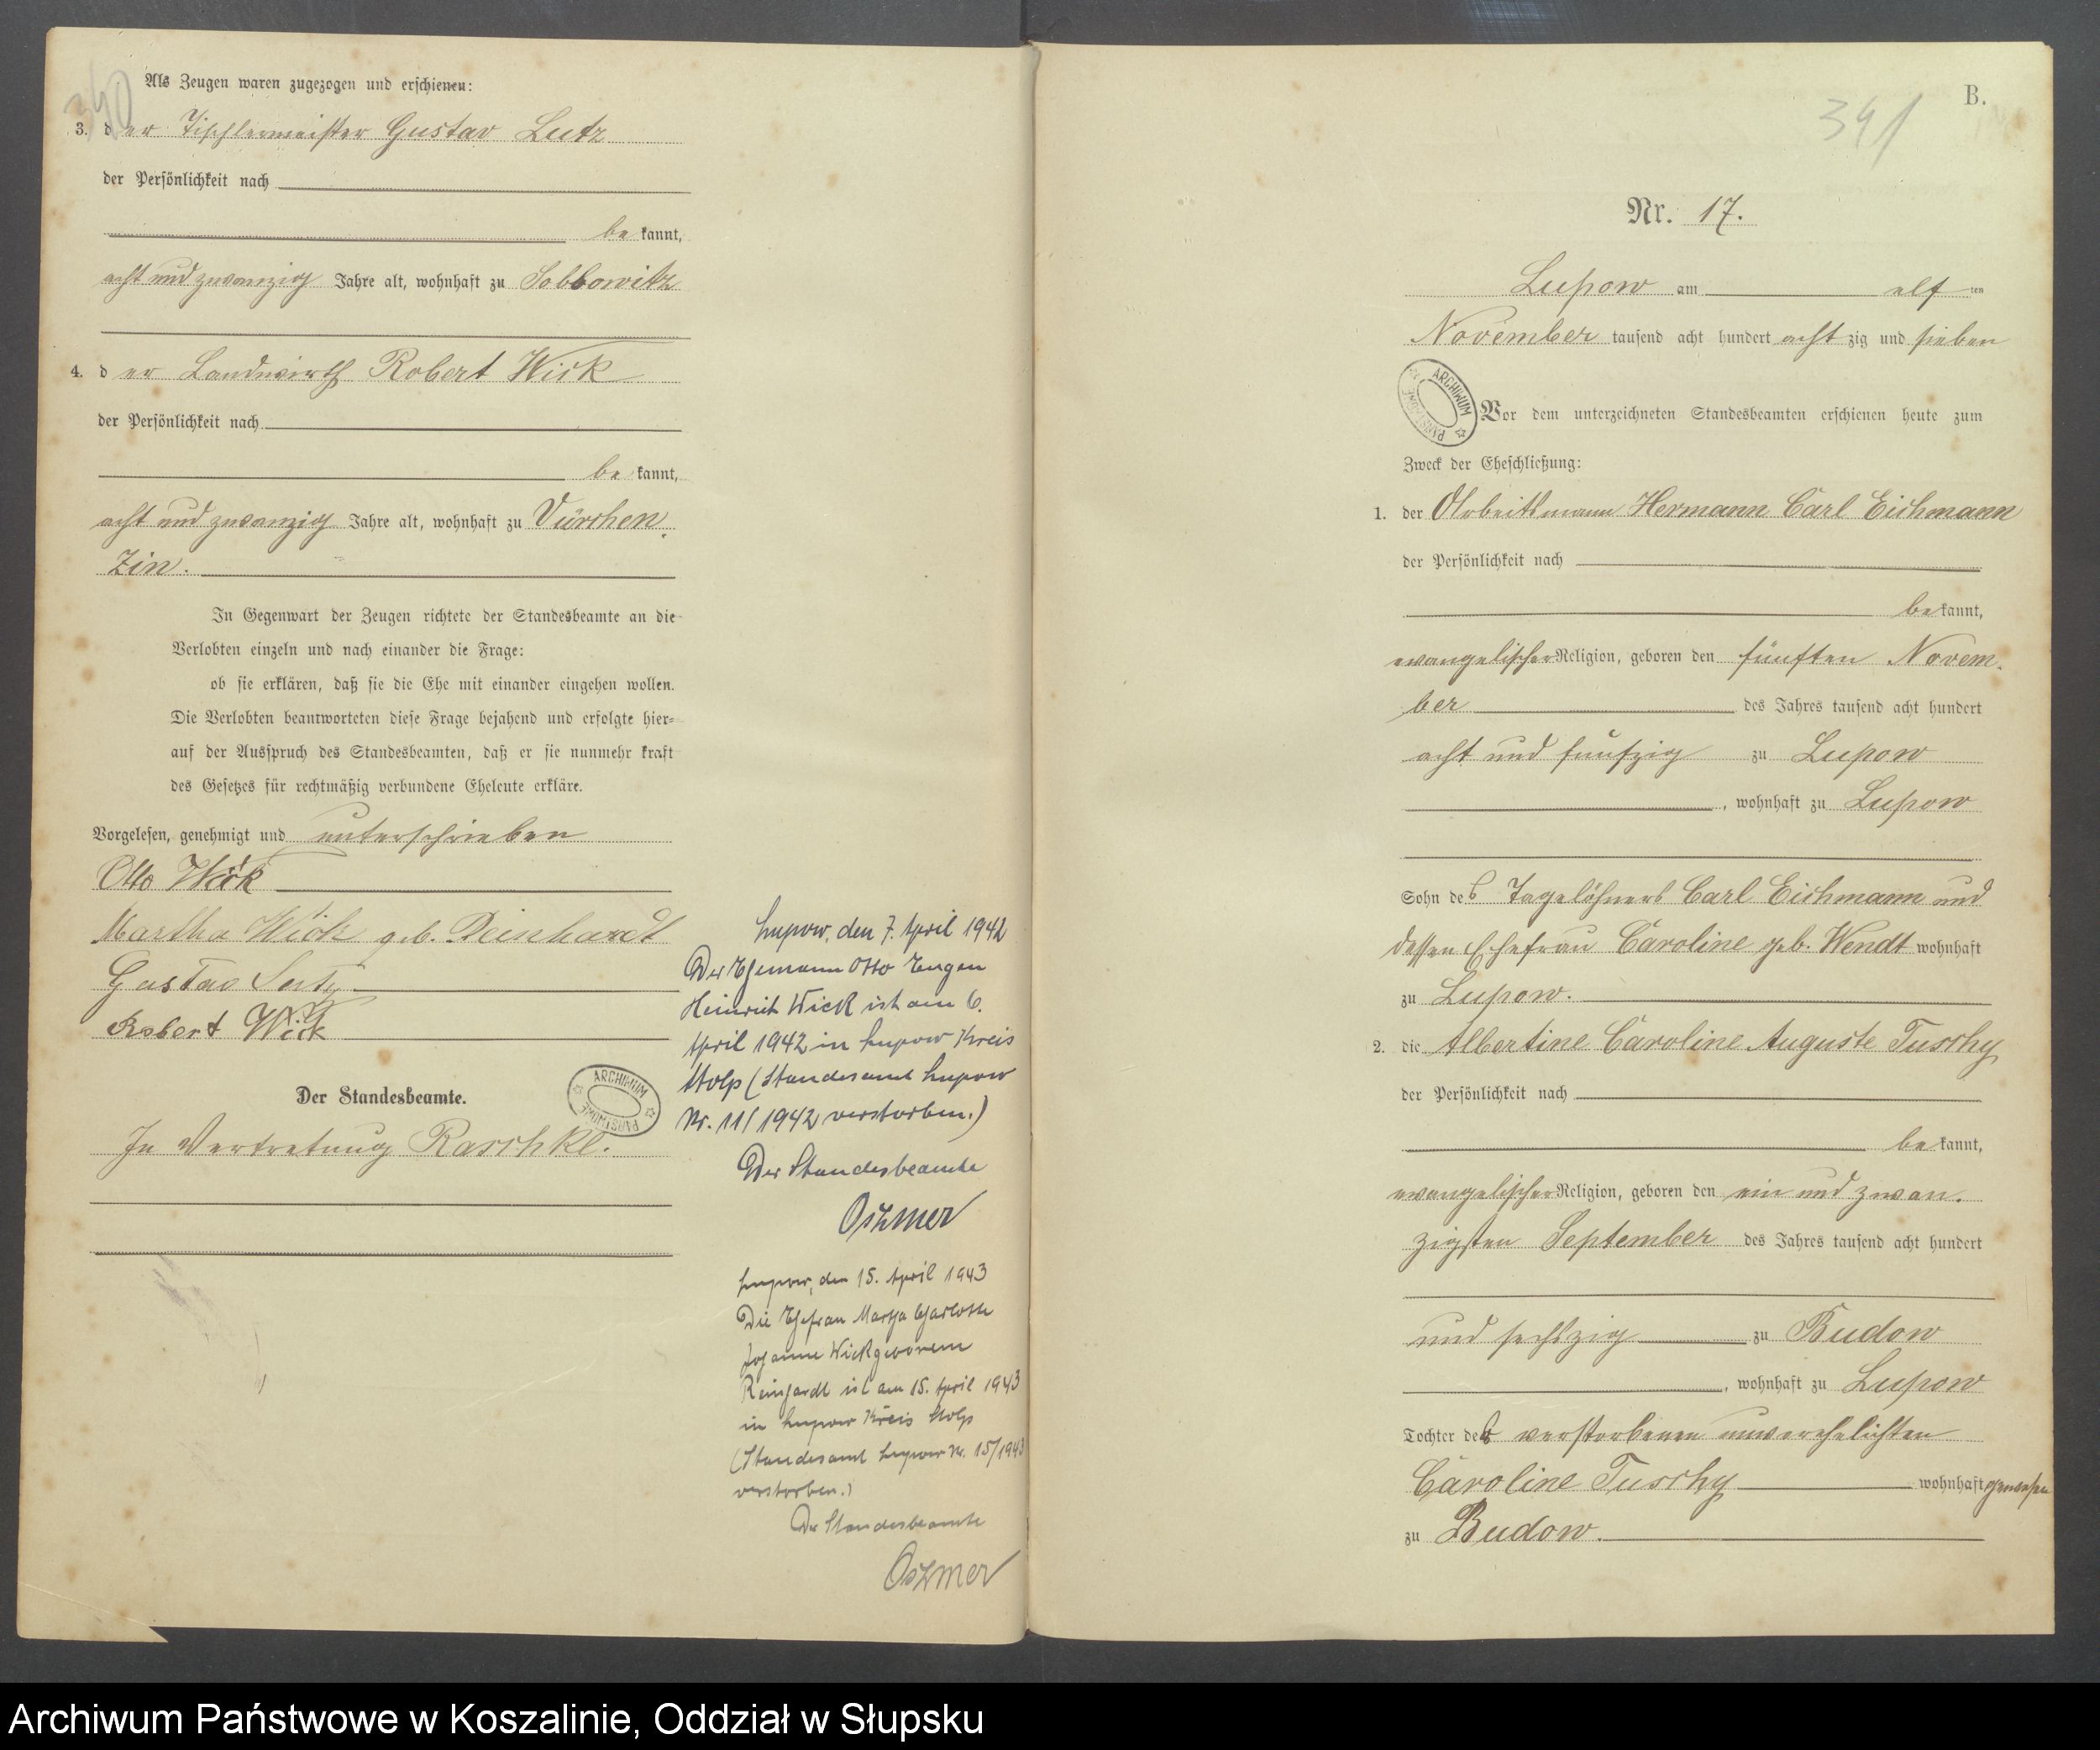 340
Als Zeugen waren zugezogen und erschienen:
3. der Tischlermeister Gustav Lutz
der Persönlichkeit nach
bekannt,
acht und zwanzig Jahre alt, wohnhaft zu Sobbowitz
4. der Landwirth Robert Wick
der Persönlichkeit nach
bekannt,
acht und zwanzig Jahre alt, wohnhaft zu Vürchen
Zin.
In Gegenwart der Zeugen richtete der Standesbeamte an die
Verlobten einzeln und nach einander die Frage:
ob sie erklären, daß sie die Ehe mit einander eingehen wollen.
Die Verlobten beantworteten diese Frage bejahend und erfolgte hier=
auf der Ausspruch des Standesbeamten, daß er sie nunmehr kraft
des Gesetzes für rechtmäßig verbundene Eheleute erkläre.
Vorgelesen, genehmigt und unterschrieben
Otto Wick
Martha Wick geb. Reinhardt
Gustav Lutz
Robert Wick
Der Standesbeamte.
In Vertretung Raschke.
ARCHIWUM PAŃSTWOWE
Lupow, den 7. April 1942
Der Ehemann Otto Eugen
Heinrich Wick ist am 6.
April 1942 in Lupow Kreis
Stolp (Standesamt Lupow
Nr. 11/1942 verstorben.)
Der Standesbeamte
Oszmer
Lupow, den 15. April 1943
Die Ehefrau Martha Charlotte
Johanne Wick geborene
Reinhardt ist am 15. April 1943
in Lupow Kreis Stolp
(Standesamt Lupow Nr. 15/1943
verstorben.)
Der Standesbeamte
Oszmer
B.
341
Nr. 17.
Lupow am elften
November tausend acht hundert achtzig und sieben
ARCHIWUM PAŃSTWOWE
Vor dem unterzeichneten Standesbeamten erschienen heute zum
Zweck der Eheschließung:
1. der Arbeitsmann Hermann Carl Eichmann
der Persönlichkeit nach
bekannt,
evangelischer Religion, geboren den fünften Novem-
ber des Jahres tausend acht hundert
acht und fünfzig zu Lupow
, wohnhaft zu Lupow
Sohn des Tagelöhners Carl Eichmann und
dessen Ehefrau Caroline geb. Wendt wohnhaft
zu Lupow.
2. die Albertine Caroline Auguste Tuschy
der Persönlichkeit nach
bekannt,
evangelischer Religion, geboren den ein und zwan-
zigsten September des Jahres tausend acht hundert
und sechszig zu Budow
, wohnhaft zu Lupow
Tochter der verstorbenen unverehelichten
Caroline Tuschy wohnhaft gewesen
zu Budow.
Archiwum Państwowe w Koszalinie, Oddział w Słupsku